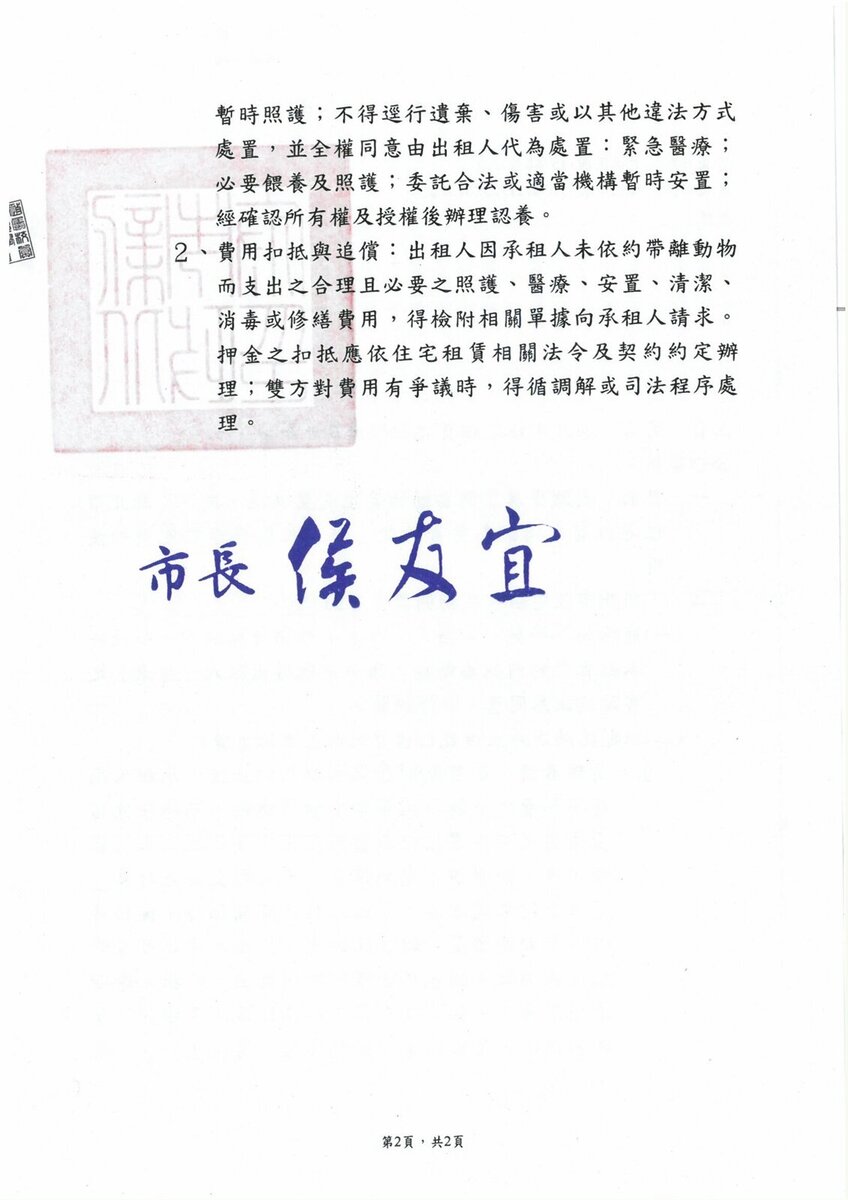 暫時照護；不得逕行遺棄、傷害或以其他違法方式
處置，並全權同意由出租人代為處置：緊急醫療；
必要餵養及照護；委託合法或適當機構暫時安置；
經確認所有權及授權後辦理認養。
2、費用扣抵與追償：出租人因承租人未依約帶離動物
而支出之合理且必要之照護、醫療、安置、清潔、
消毒或修繕費用，得檢附相關單據向承租人請求。
押金之扣抵應依住宅租賃相關法令及契約約定辦
理；雙方對費用有爭議時，得循調解或司法程序處
理。
市長 侯友宜
第2頁，共2頁